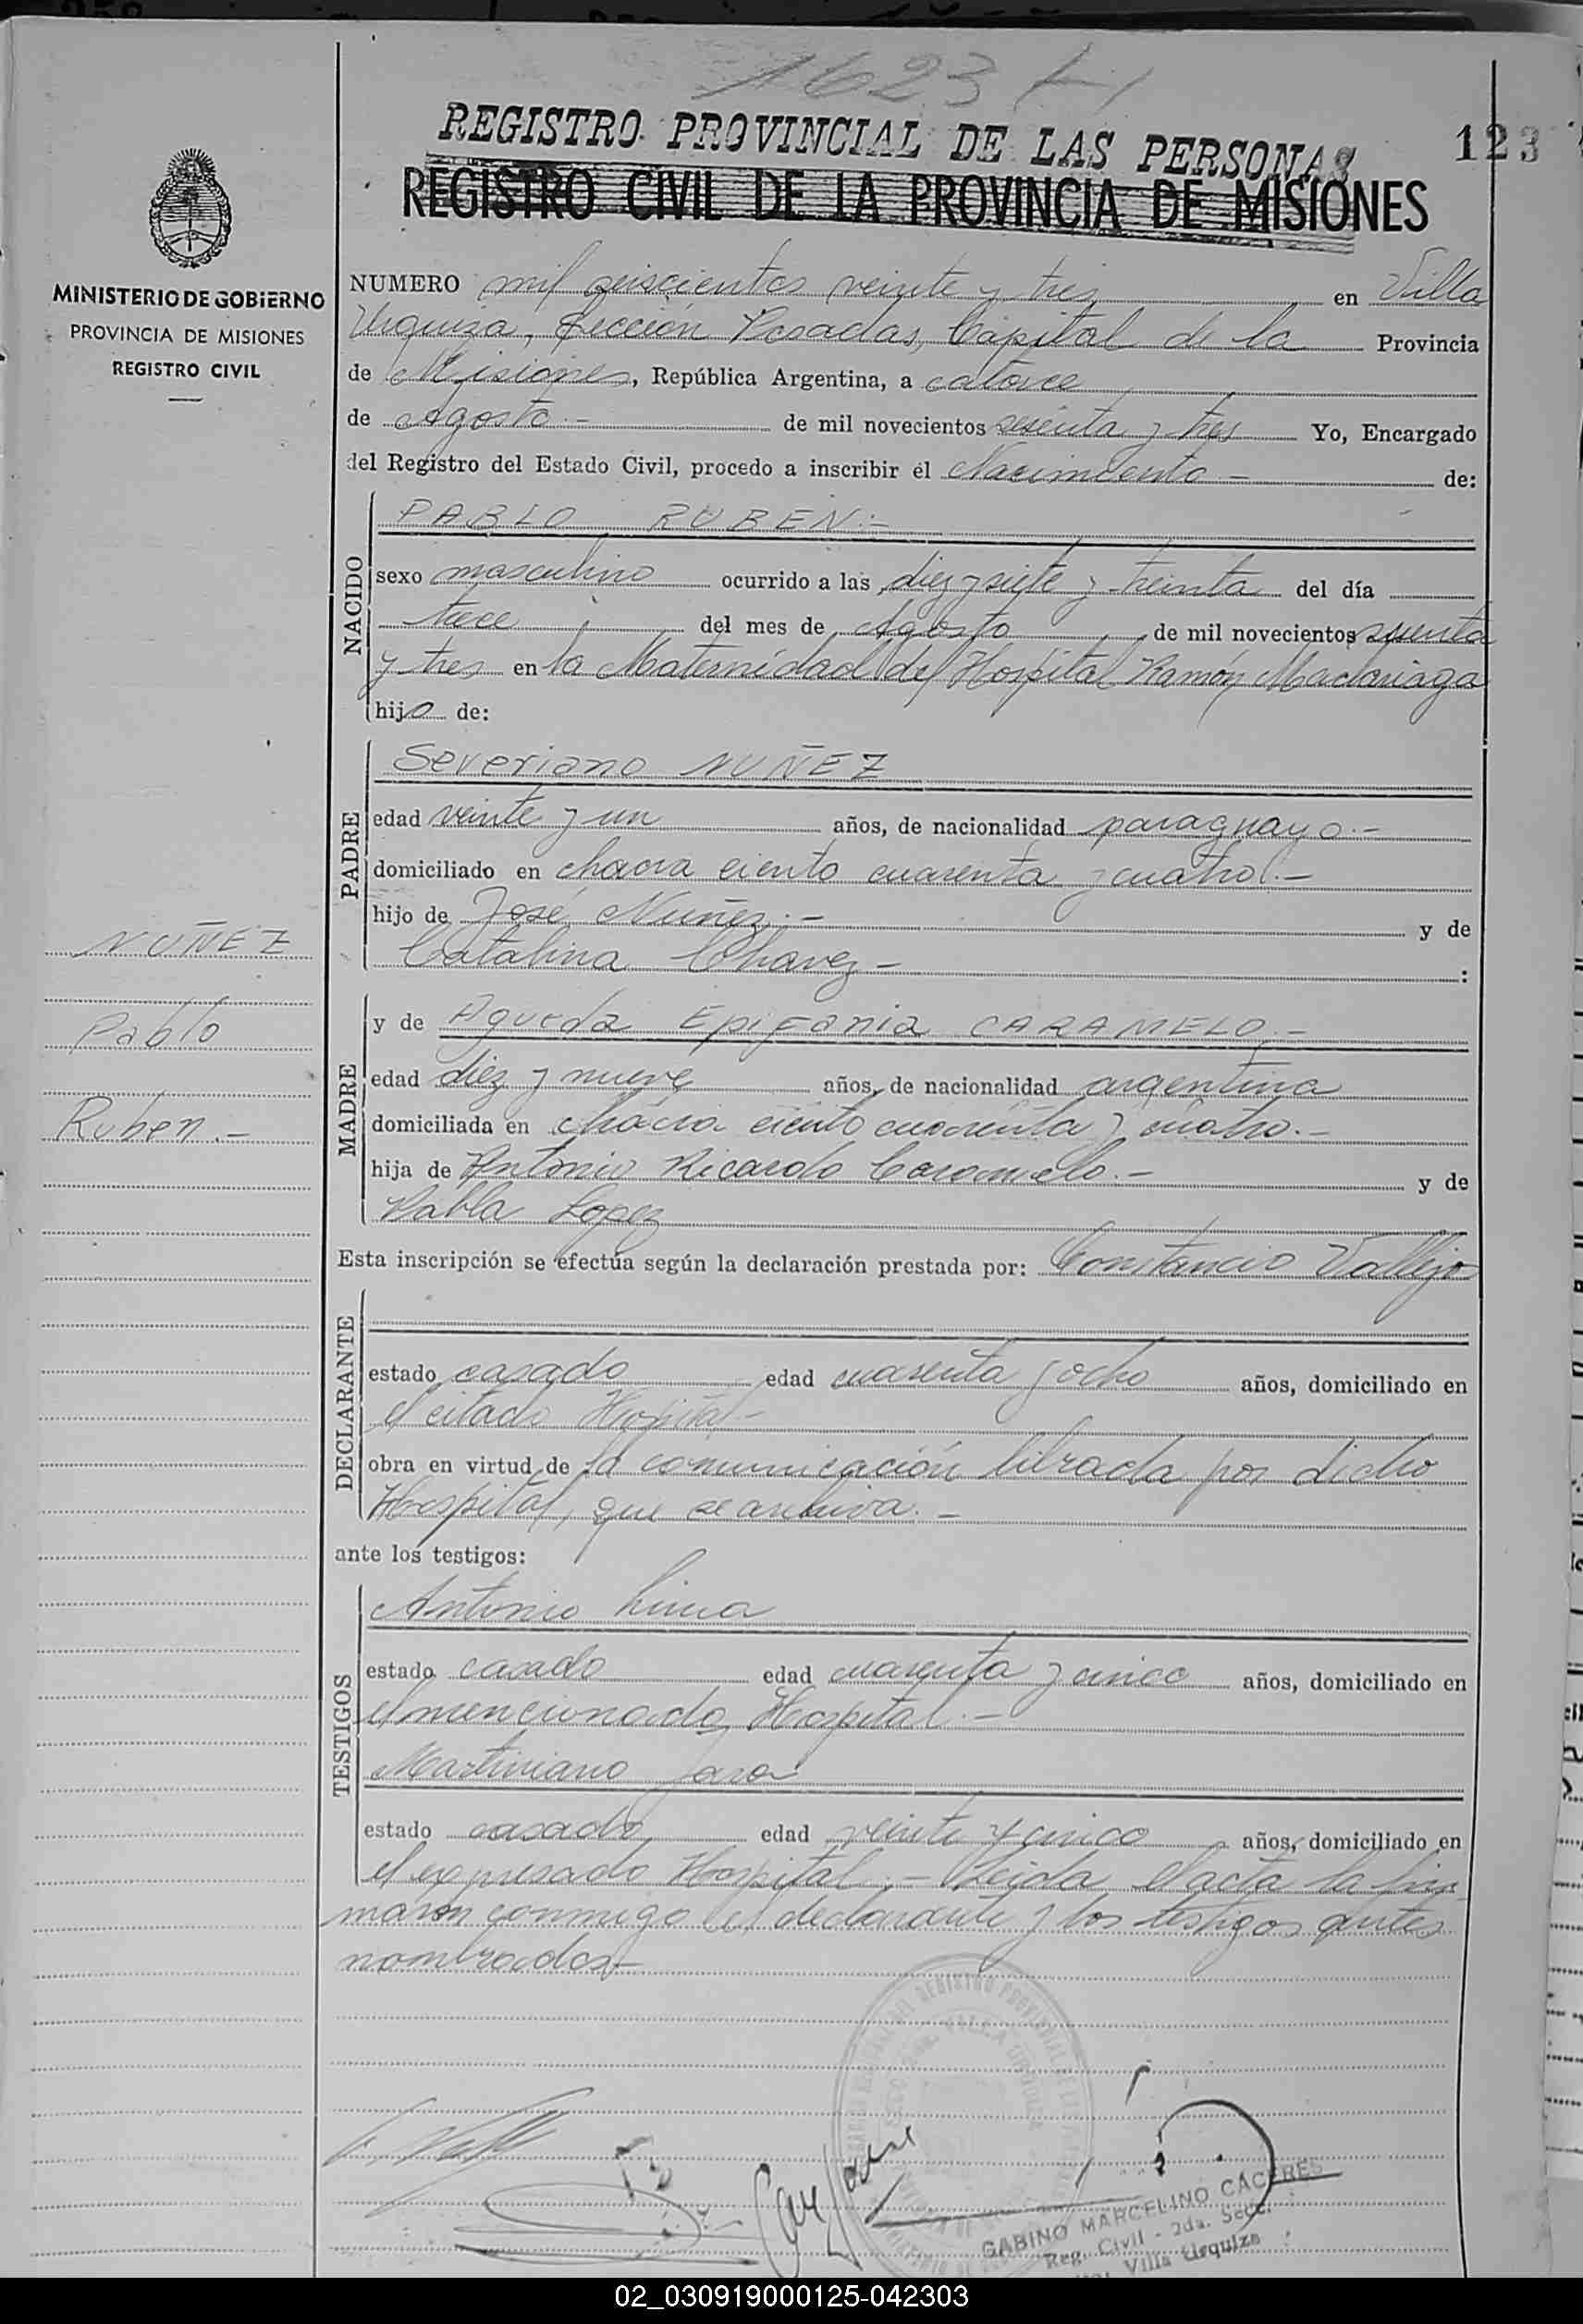 1623
123
REGISTRO PROVINCIAL DE LAS PERSONAS
REGISTRO CIVIL DE LA PROVINCIA DE MISIONES
MINISTERIO DE GOBIERNO
PROVINCIA DE MISIONES
REGISTRO CIVIL
NUMERO mil seiscientos veinte y tres en Villa
Urquiza, Sección Posadas, Capital de la Provincia
de Misiones, República Argentina, a catorce
de Agosto.- de mil novecientos sesenta y tres Yo, Encargado
del Registro del Estado Civil, procedo a inscribir el Nacimiento.- de:
NACIDO
PABLO RUBEN.-
sexo masculino ocurrido a las diez y siete y treinta del día
trece del mes de Agosto de mil novecientos sesenta
y tres en la Maternidad del Hospital Ramón Madariaga
hijo de:
PADRE
Severiano NUÑEZ
edad veinte y un años, de nacionalidad paraguayo.-
domiciliado en chacra ciento cuarenta y cuatro.-
hijo de José Nuñez.- y de
Catalina Chavez- :
NUÑEZ
Pablo
Ruben.-
MADRE
y de Agueda Epifania CARAMELO.-
edad diez y nueve años, de nacionalidad argentina
domiciliada en chacra ciento cuarenta y cuatro.-
hija de Antonio Ricardo Caramelo.- y de
Pabla Lopez
Esta inscripción se efectúa según la declaración prestada por: Constancio Vallejo
DECLARANTE
estado casado edad cuarenta y ocho años, domiciliado en
el citado Hospital-
obra en virtud de la comunicación librada por dicho
Hospital, que se archiva.-
ante los testigos:
TESTIGOS
Antonio Lima
estado casado edad cuarenta y cinco años, domiciliado en
el mencionado Hospital.-
Martiniano Jara
estado casado edad veinte y cinco años, domiciliado en
el expresado Hospital.- Leída el acta la fir
maron conmigo el declarante y los testigos antes
nombrados-
GABINO MARCELINO CACERES
Reg. Civil - 2da. Secc.
Villa Urquiza
02_030919000125-042303